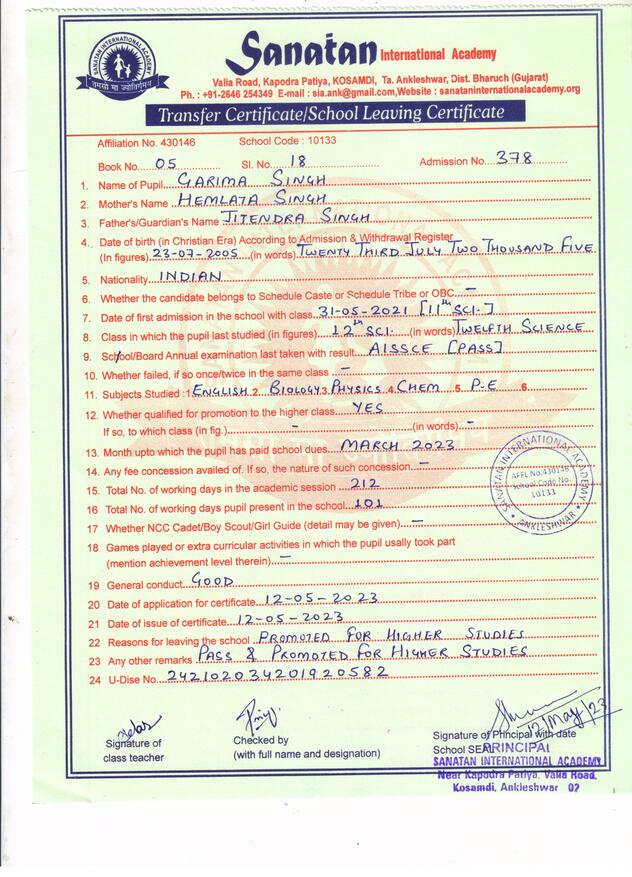 SANATAN INTERNATIONAL ACADEMY
तमसो मा ज्योतिर्गमय
Sanatan International Academy
Valia Road, Kapodra Patiya, KOSAMDI, Ta. Ankleshwar, Dist. Bharuch (Gujarat)
Ph. : +91-2646 254349 E-mail : sia.ank@gmail.com,Website : sanataninternationalacademy.org
Transfer Certificate/School Leaving Certificate
Affiliation No. 430146 School Code : 10133
Book No. 05 Sl. No. 18 Admission No. 378
1. Name of Pupil GARIMA SINGH
2. Mother's Name HEMLATA SINGH
3. Father's/Guardian's Name JITENDRA SINGH
4. Date of birth (in Christian Era) According to Admission & Withdrawal Register
(In figures) 23-07-2005 (in words) TWENTY THIRD JULY TWO THOUSAND FIVE
5. Nationality INDIAN
6. Whether the candidate belongs to Schedule Caste or Schedule Tribe or OBC –
7. Date of first admission in the school with class 31-05-2021 [11th SCI.]
8. Class in which the pupil last studied (in figures) 12th SCI. (in words) TWELFTH SCIENCE
9. School/Board Annual examination last taken with result AISSCE [PASS]
10. Whether failed, if so once/twice in the same class –
11. Subjects Studied : 1 ENGLISH 2 BIOLOGY 3 PHYSICS 4 CHEM 5. P-E 6.
12. Whether qualified for promotion to the higher class YES
If so, to which class (in fig.) - (in words) -
13. Month upto which the pupil has paid school dues MARCH 2023
14. Any fee concession availed of. If so, the nature of such concession –
15. Total No. of working days in the academic session 212
16 Total No. of working days pupil present in the school 101
17 Whether NCC Cadet/Boy Scout/Girl Guide (detail may be given) –
18 Games played or extra curricular activities in which the pupil usally took part
(mention achievement level therein) –
19 General conduct GOOD
20 Date of application for certificate 12-05-2023
21 Date of issue of certificate 12-05-2023
22 Reasons for leaving the school PROMOTED FOR HIGHER STUDIES
23 Any other remarks PASS & PROMOTED FOR HIGHER STUDIES
24 U-Dise No. 242102034201920582
SANATAN INTERNATIONAL ACADEMY
AFFL No.430146
School Code No.
10133
ANKLESHWAR
12/May/23
Signature of class teacher
Checked by
(with full name and designation)
Signature of Principal with date
School SEAL
PRINCIPAL
SANATAN INTERNATIONAL ACADEMY
Near Kapodra Patiya, Valia Road,
Kosamdi, Ankleshwar 02